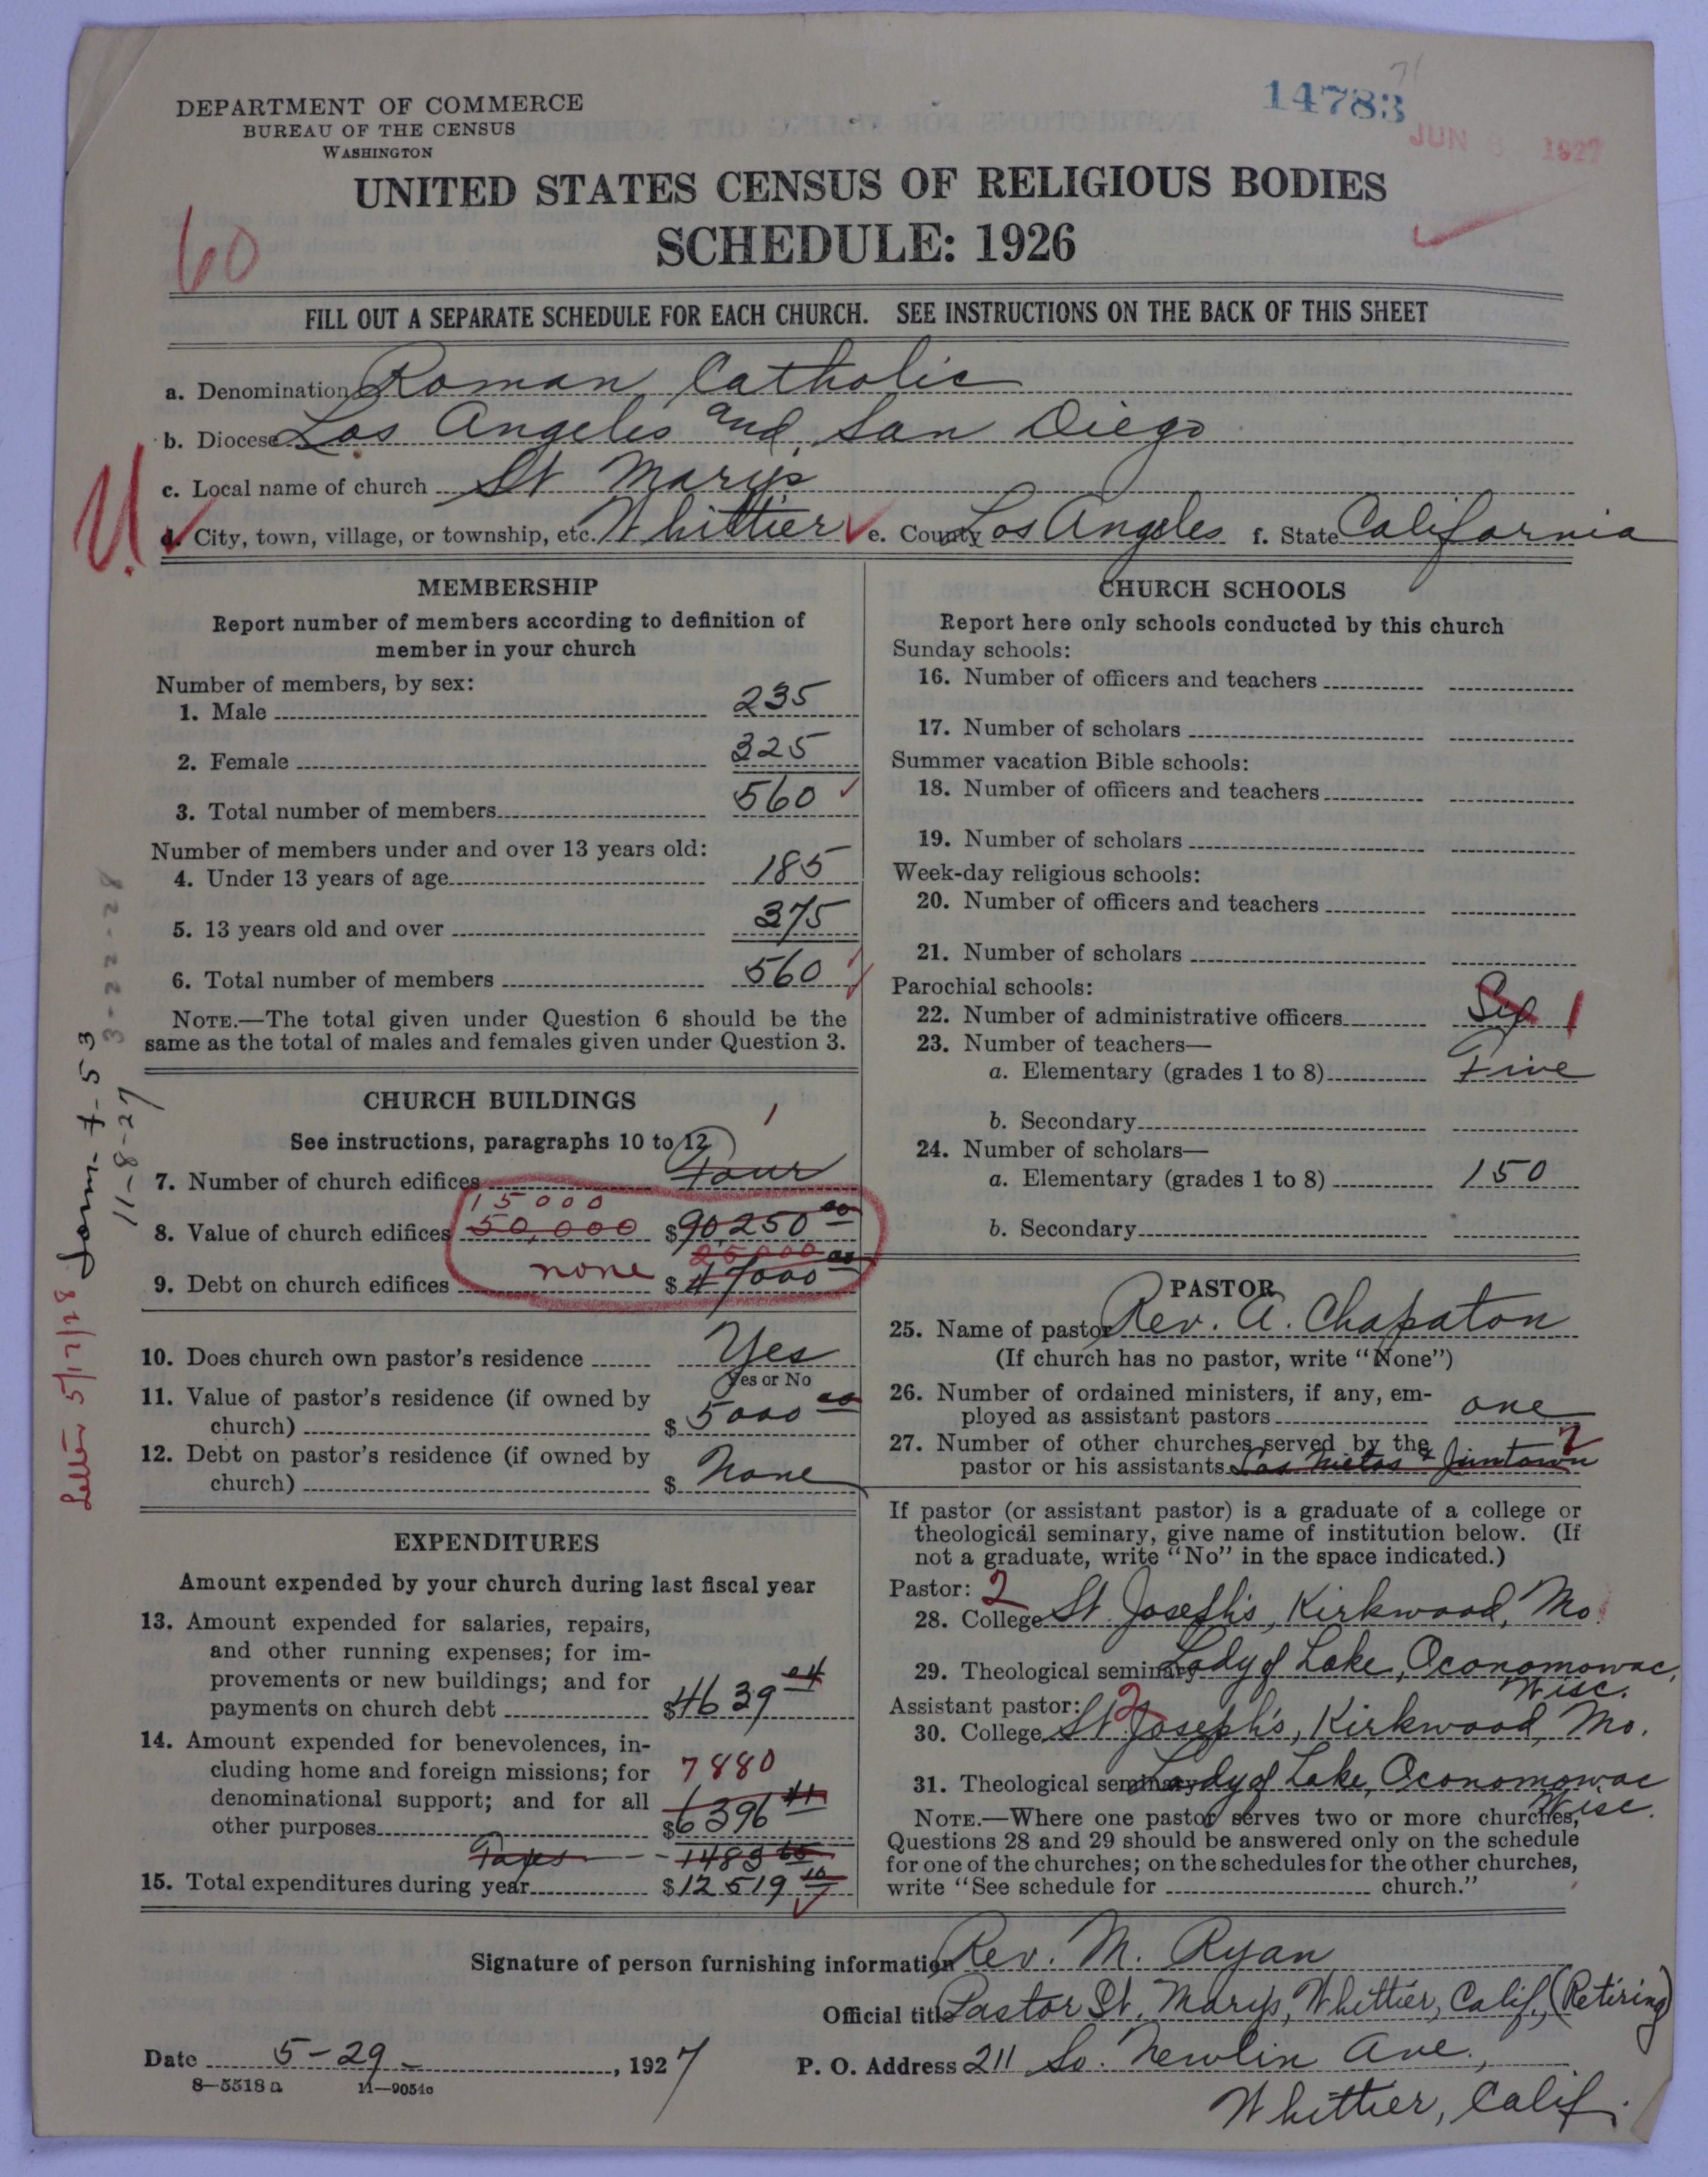 14783
JUN 8 1927
DEPARTMENT OF COMMERCE
BUREAU OF THE CENSUS
WASHINGTON
UNITED STATES CENSUS OF RELIGIOUS BODIES
SCHEDULE: 1926
60
FILL OUT A SEPARATE SCHEDULE FOR EACH CHURCH. SEE INSTRUCTIONS ON THE BACK OF THIS SHEET
a. Denomination Roman Catholic
b. Diocese Los Angeles and San Diego
c. Local name of church St Mary's
U.
d. City, town, village, or township, etc. Whittier e. County Los Angeles f. State California
MEMBERSHIP
Report number of members according to definition of
member in your church
Number of members, by sex:
1. Male 235
2. Female 325
3. Total number of members 560
Number of members under and over 13 years old:
4. Under 13 years of age 185
5. 13 years old and over 375
6. Total number of members 560
NOTE.—The total given under Question 6 should be the
same as the total of males and females given under Question 3.
CHURCH BUILDINGS
See instructions, paragraphs 10 to 12
1
7. Number of church edifices Four
15000
8. Value of church edifices 50,000 $90,250 00
25000 00
9. Debt on church edifices none $47000
10. Does church own pastor's residence Yes
Yes or No
11. Value of pastor's residence (if owned by
church) $5000 00
12. Debt on pastor's residence (if owned by
church) $ None
EXPENDITURES
Amount expended by your church during last fiscal year
13. Amount expended for salaries, repairs,
and other running expenses; for im-
provements or new buildings; and for
payments on church debt $4639 04
14. Amount expended for benevolences, in-
cluding home and foreign missions; for 7880
denominational support; and for all
other purposes $6396 41
Taxes 1483 65
15. Total expenditures during year $12519 10
CHURCH SCHOOLS
Report here only schools conducted by this church
Sunday schools:
16. Number of officers and teachers
17. Number of scholars
Summer vacation Bible schools:
18. Number of officers and teachers
19. Number of scholars
Week-day religious schools:
20. Number of officers and teachers
21. Number of scholars
Parochial schools:
22. Number of administrative officers 1
23. Number of teachers—
a. Elementary (grades 1 to 8) Five
b. Secondary
24. Number of scholars—
a. Elementary (grades 1 to 8) 150
b. Secondary
PASTOR
25. Name of pastor Rev. A. Chapaton
(If church has no pastor, write "None")
26. Number of ordained ministers, if any, em-
ployed as assistant pastors one
27. Number of other churches served by the 2
pastor or his assistants Los Nietos & Jimtown
If pastor (or assistant pastor) is a graduate of a college or
theological seminary, give name of institution below. (If
not a graduate, write "No" in the space indicated.)
Pastor: 2
28. College St. Joseph's, Kirkwood, Mo.
29. Theological seminary Lady of Lake, Oconomowac,
Wisc.
Assistant pastor: 2
30. College St. Joseph's, Kirkwood, Mo.
31. Theological seminary Lady of Lake, Oconomowac
Wisc.
NOTE.—Where one pastor serves two or more churches,
Questions 28 and 29 should be answered only on the schedule
for one of the churches; on the schedules for the other churches,
write "See schedule for church."
Signature of person furnishing information Rev. M. Ryan
Official title Pastor St. Mary's, Whittier, Calif., (Retiring)
Date 5-29-, 1927 P. O. Address 211 So. Newlin Ave.,
8-5518a 11-9051c
Whittier, Calif.
Letter 5/17/28
Form 7-53
11-8-27
3-22-28